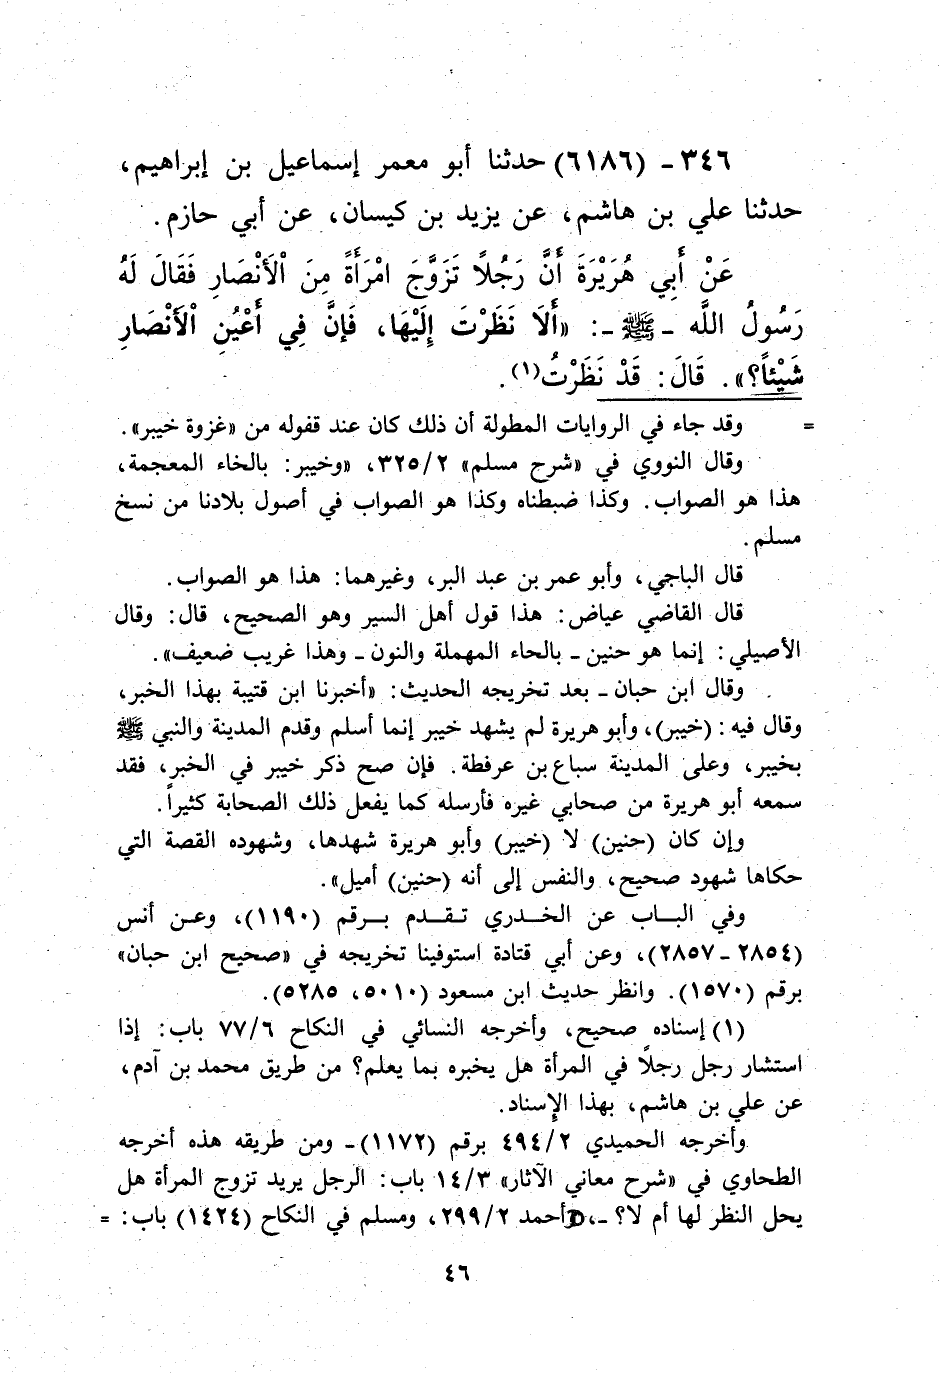 ٣٤٦ ـ (٦١٨٦) حدثنا أبو معمر إسماعيل بن إبراهيم،
حدثنا علي بن هاشم، عن يزيد بن كيسان، عن أبي حازم.
عَنْ أَبِي هُرَيْرَةَ أَنَّ رَجُلاً تَزَوَّجَ امْرَأَةً مِنَ اْلأَنْصَارِ فَقَالَ لَهُ
رَسُولُ اللَّه ـ ﷺ ـ: «أَلَا نَظَرْتَ إِلَيْهَا، فَإِنَّ فِي أَعْيُنِ اْلأَنْصَارِ
شَيْئاً؟». قَالَ: قَدْ نَظَرْتُ(١).
= وقد جاء في الروايات المطولة أن ذلك كان عند قفوله من «غزوة خيبر».
وقال النووي في «شرح مسلم» ٣٢٥/٢، «وخيبر: بالخاء المعجمة،
هذا هو الصواب. وكذا ضبطناه وكذا هو الصواب في أصول بلادنا من نسخ
مسلم.
قال الباجي، وأبو عمر بن عبد البر، وغيرهما: هذا هو الصواب.
قال القاضي عياض: هذا قول أهل السير وهو الصحيح، قال: وقال
الأصيلي: إنما هو حنين ـ بالحاء المهملة والنون ـ وهذا غريب ضعيف».
وقال ابن حبان ـ بعد تخريجه الحديث: «أخبرنا ابن قتيبة بهذا الخبر،
وقال فيه: (خيبر)، وأبو هريرة لم يشهد خيبر إنما أسلم وقدم المدينة والنبي ﷺ
بخيبر، وعلى المدينة سباع بن عرفطة. فإن صح ذكر خيبر في الخبر، فقد
سمعه أبو هريرة من صحابي غيره فأرسله كما يفعل ذلك الصحابة كثيراً.
وإن كان (حنين) لا (خيبر) وأبو هريرة شهدها، وشهوده القصة التي
حكاها شهود صحيح، والنفس إلى أنه (حنين) أميل».
وفي البـاب عن الخـدري تـقـدم بـرقم (١١٩٠)، وعـن أنس
(٢٨٥٤ ـ ٢٨٥٧)، وعن أبي قتادة استوفينا تخريجه في «صحيح ابن حبان»
برقم (١٥٧٠). وانظر حديث ابن مسعود (٥٠١٠، ٥٢٨٥).
(١) إسناده صحيح، وأخرجه النسائي في النكاح ٧٧/٦ باب: إذا
استشار رجل رجلاً في المرأة هل يخبره بما يعلم؟ من طريق محمد بن آدم،
عن علي بن هاشم، بهذا الإسناد.
وأخرجه الحميدي ٤٩٤/٢ برقم (١١٧٢) ـ ومن طريقه هذه أخرجه
الطحاوي في «شرح معاني الآثار» ١٤/٣ باب: الرجل يريد تزوج المرأة هل
يحل النظر لها أم لا؟ ـ، وأحمد ٢٩٩/٢، ومسلم في النكاح (١٤٢٤) باب: =
٤٦